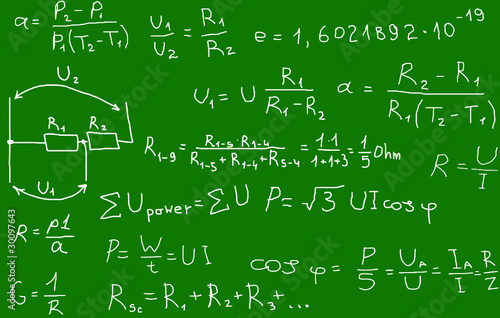 a = P₂ - P₁ / P₁(T₂ - T₁)
U₁/U₂ = R₁/R₂
e = 1,6021892·10⁻¹⁹
U₂
R₁ R₂
U₁
U₁ = U R₁ / R₁ - R₂
a = R₂ - R₁ / R₁(T₂ - T₁)
R₁₋₉ = R₁₋₅·R₁₋₄ / R₁₋₅ + R₁₋₄ + R₅₋₄ = 1·1 / 1+1+3 = 1/5 Ohm
R = U/I
ΣU power = ΣU
P = √3 UI cos φ
R = ρ1/a
P = W/t = UI
cos φ = P/S = U_A/U = I_A/I = R/Z
G = 1/R
R_sc = R₁ + R₂ + R₃ + ...
Adobe Stock | #30097643